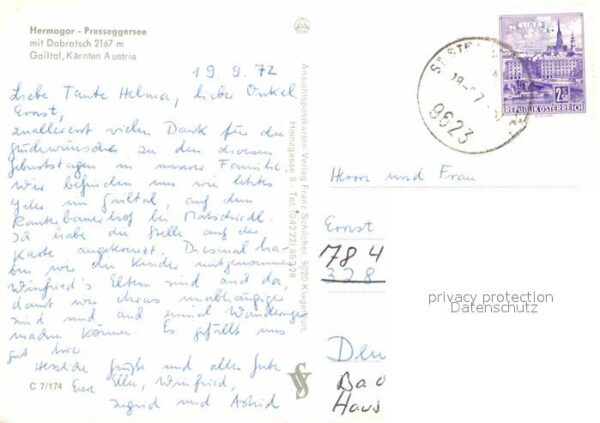 Hermagor - Presseggersee
mit Dobratsch 2167 m
Gailtal, Kärnten Austria
19. 9. 72
Liebe Tante Helma, lieber Onkel
Ernst,
zuallererst vielen Dank für die
Glückwünsche zu den diversen
Geburtstagen in unserer Familie.
Wir befinden uns wie letztes
Jahr im Gailtal, auf dem
bauerhof bei Matschiedl.
Ich habe die Stelle auf der
Karte angekreuzt. Diesmal ha-
ben wir die Kinder mitgenommen
Winfried's Eltern sind auch da,
damit wir etwas unabhängiger
sind und auch einmal
machen können. Es gefällt uns
gut hier.
Herzliche Grüße und alles Gute
Eure Elke, Winfried,
Ingrid und Astrid
C 7/174
Ansichtspostkarten-Verlag Franz Schilcher, 9020 Klagenfurt,
Henzgasse 8 - Tel. (04222) 85928
9623
2.50
REPUBLIK ÖSTERREICH
Herrn und Frau
Ernst
784
328
privacy protection
Datenschutz
Den
Bad
Haus